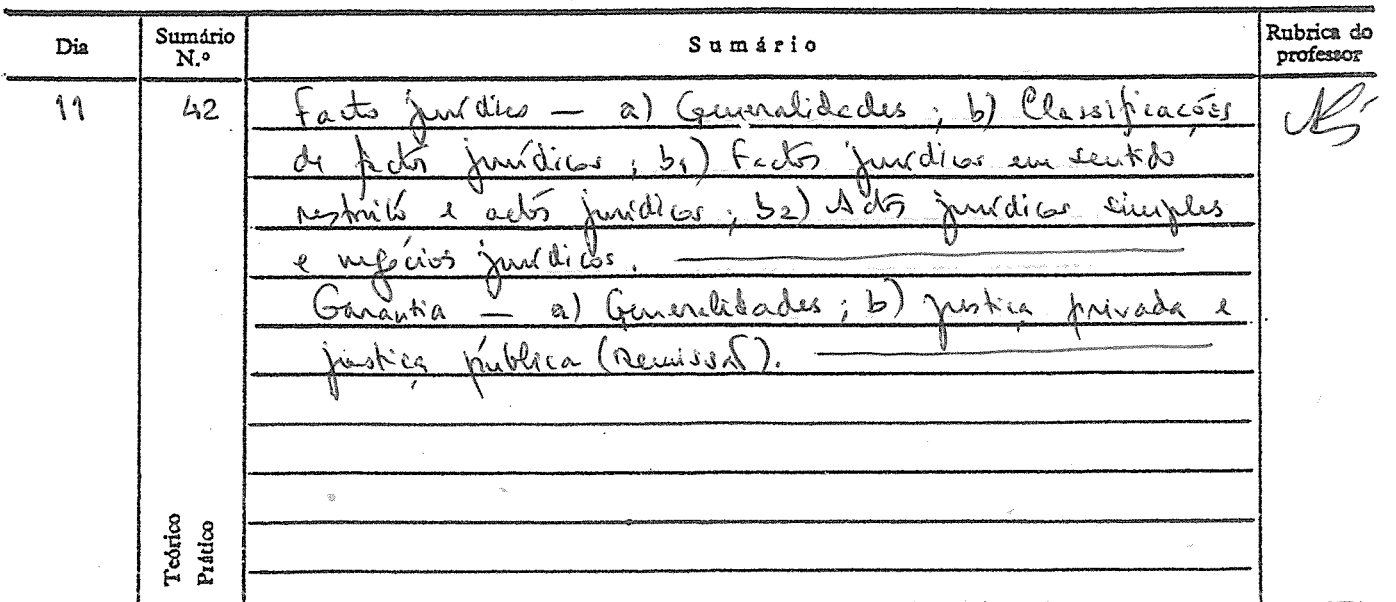 Dia
Sumário N.º
Sumário
Rubrica do professor
11
42
Facto jurídico — a) Generalidades ; b) Classificações
de factos jurídicos ; b1) Factos jurídicos em sentido
restrito e actos jurídicos ; b2) Actos jurídicos simples
e negócios jurídicos.
Garantia — a) Generalidades ; b) justiça privada e
justiça pública (Remissão).
Teórico
Prático